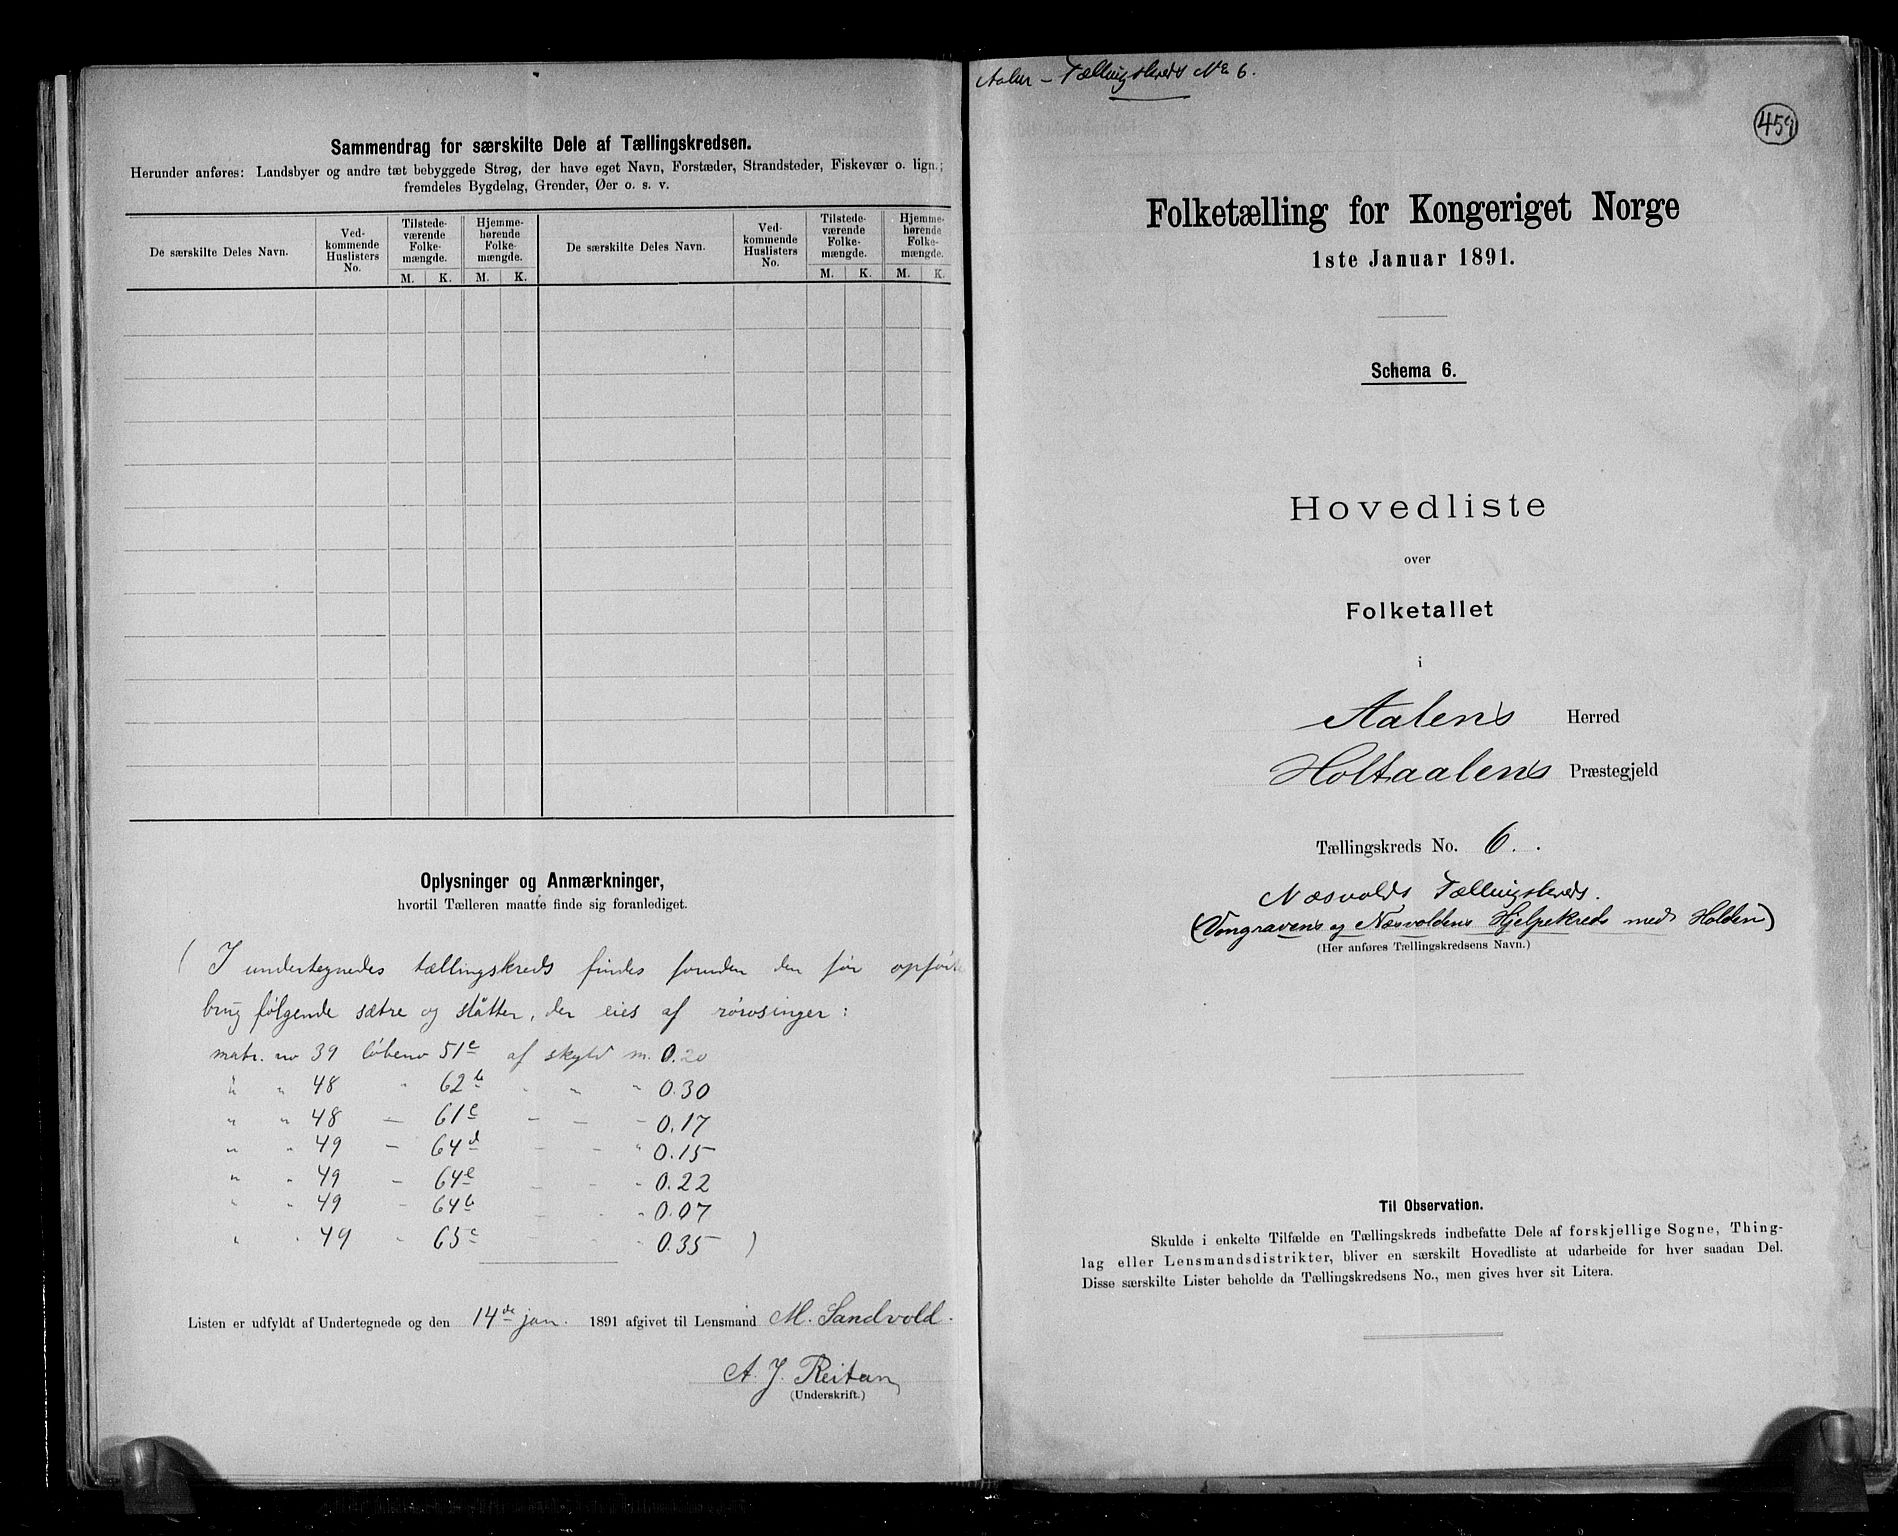 Sammendrag for særskilte Dele af Tællingskredsen.
Herunder anføres: Landsbyer og andre tæt bebyggede Strøg, der have eget Navn, Forstæder, Strandsteder, Fiskevær o. lign.;
fremdeles Bygdelag, Grender, Øer o. s. v.
De særskilte Deles Navn.
Ved-
kommende
Huslisters
No.
Tilstede-
værende
Folke-
mængde.
M. K.
Hjemme-
hørende
Folke-
mængde.
M. K.
De særskilte Deles Navn.
Ved-
kommende
Huslisters
No.
Tilstede-
værende
Folke-
mængde.
M. K.
Hjemme-
hørende
Folke-
mængde.
M. K.
Oplysninger og Anmærkninger,
hvortil Tælleren maatte finde sig foranlediget.
( I undertegnedes tællingskreds findes foruden den før opførte
brug følgende sætre og slåtter, der eies af rørosinger:
matr. no 39 løbeno 51c af skyld m. 0.20
" " 48 " 62b " " " 0.30
" " 48 — 61c — — — 0.17
" " 49 — 64d " " " 0.15
" " 49 — 64e " " " 0.22
" " 49 — 64b " " " 0.07
" " 49 " 65c " " " 0.35 )
Listen er udfyldt af Undertegnede og den 14de jan. 1891 afgivet til Lensmand M. Sandvold.
A. J. Reitan
(Underskrift.)
Aalen – Tællingskreds No 6.
459
Folketælling for Kongeriget Norge
1ste Januar 1891.
Schema 6.
Hovedliste
over
Folketallet
i
Aalens Herred
Holtaalens Præstegjeld
Tællingskreds No. 6.
Næsvolds Tællingskreds.
(Vongravens og Næsvoldens Hjelpekreds med Holden)
(Her anføres Tællingskredsens Navn.)
Til Observation.
Skulde i enkelte Tilfælde en Tællingskreds indbefatte Dele af forskjellige Sogne, Thing-
lag eller Lensmandsdistrikter, bliver en særskilt Hovedliste at udarbeide for hver saadan Del.
Disse særskilte Lister beholde da Tællingskredsens No., men gives hver sit Litera.